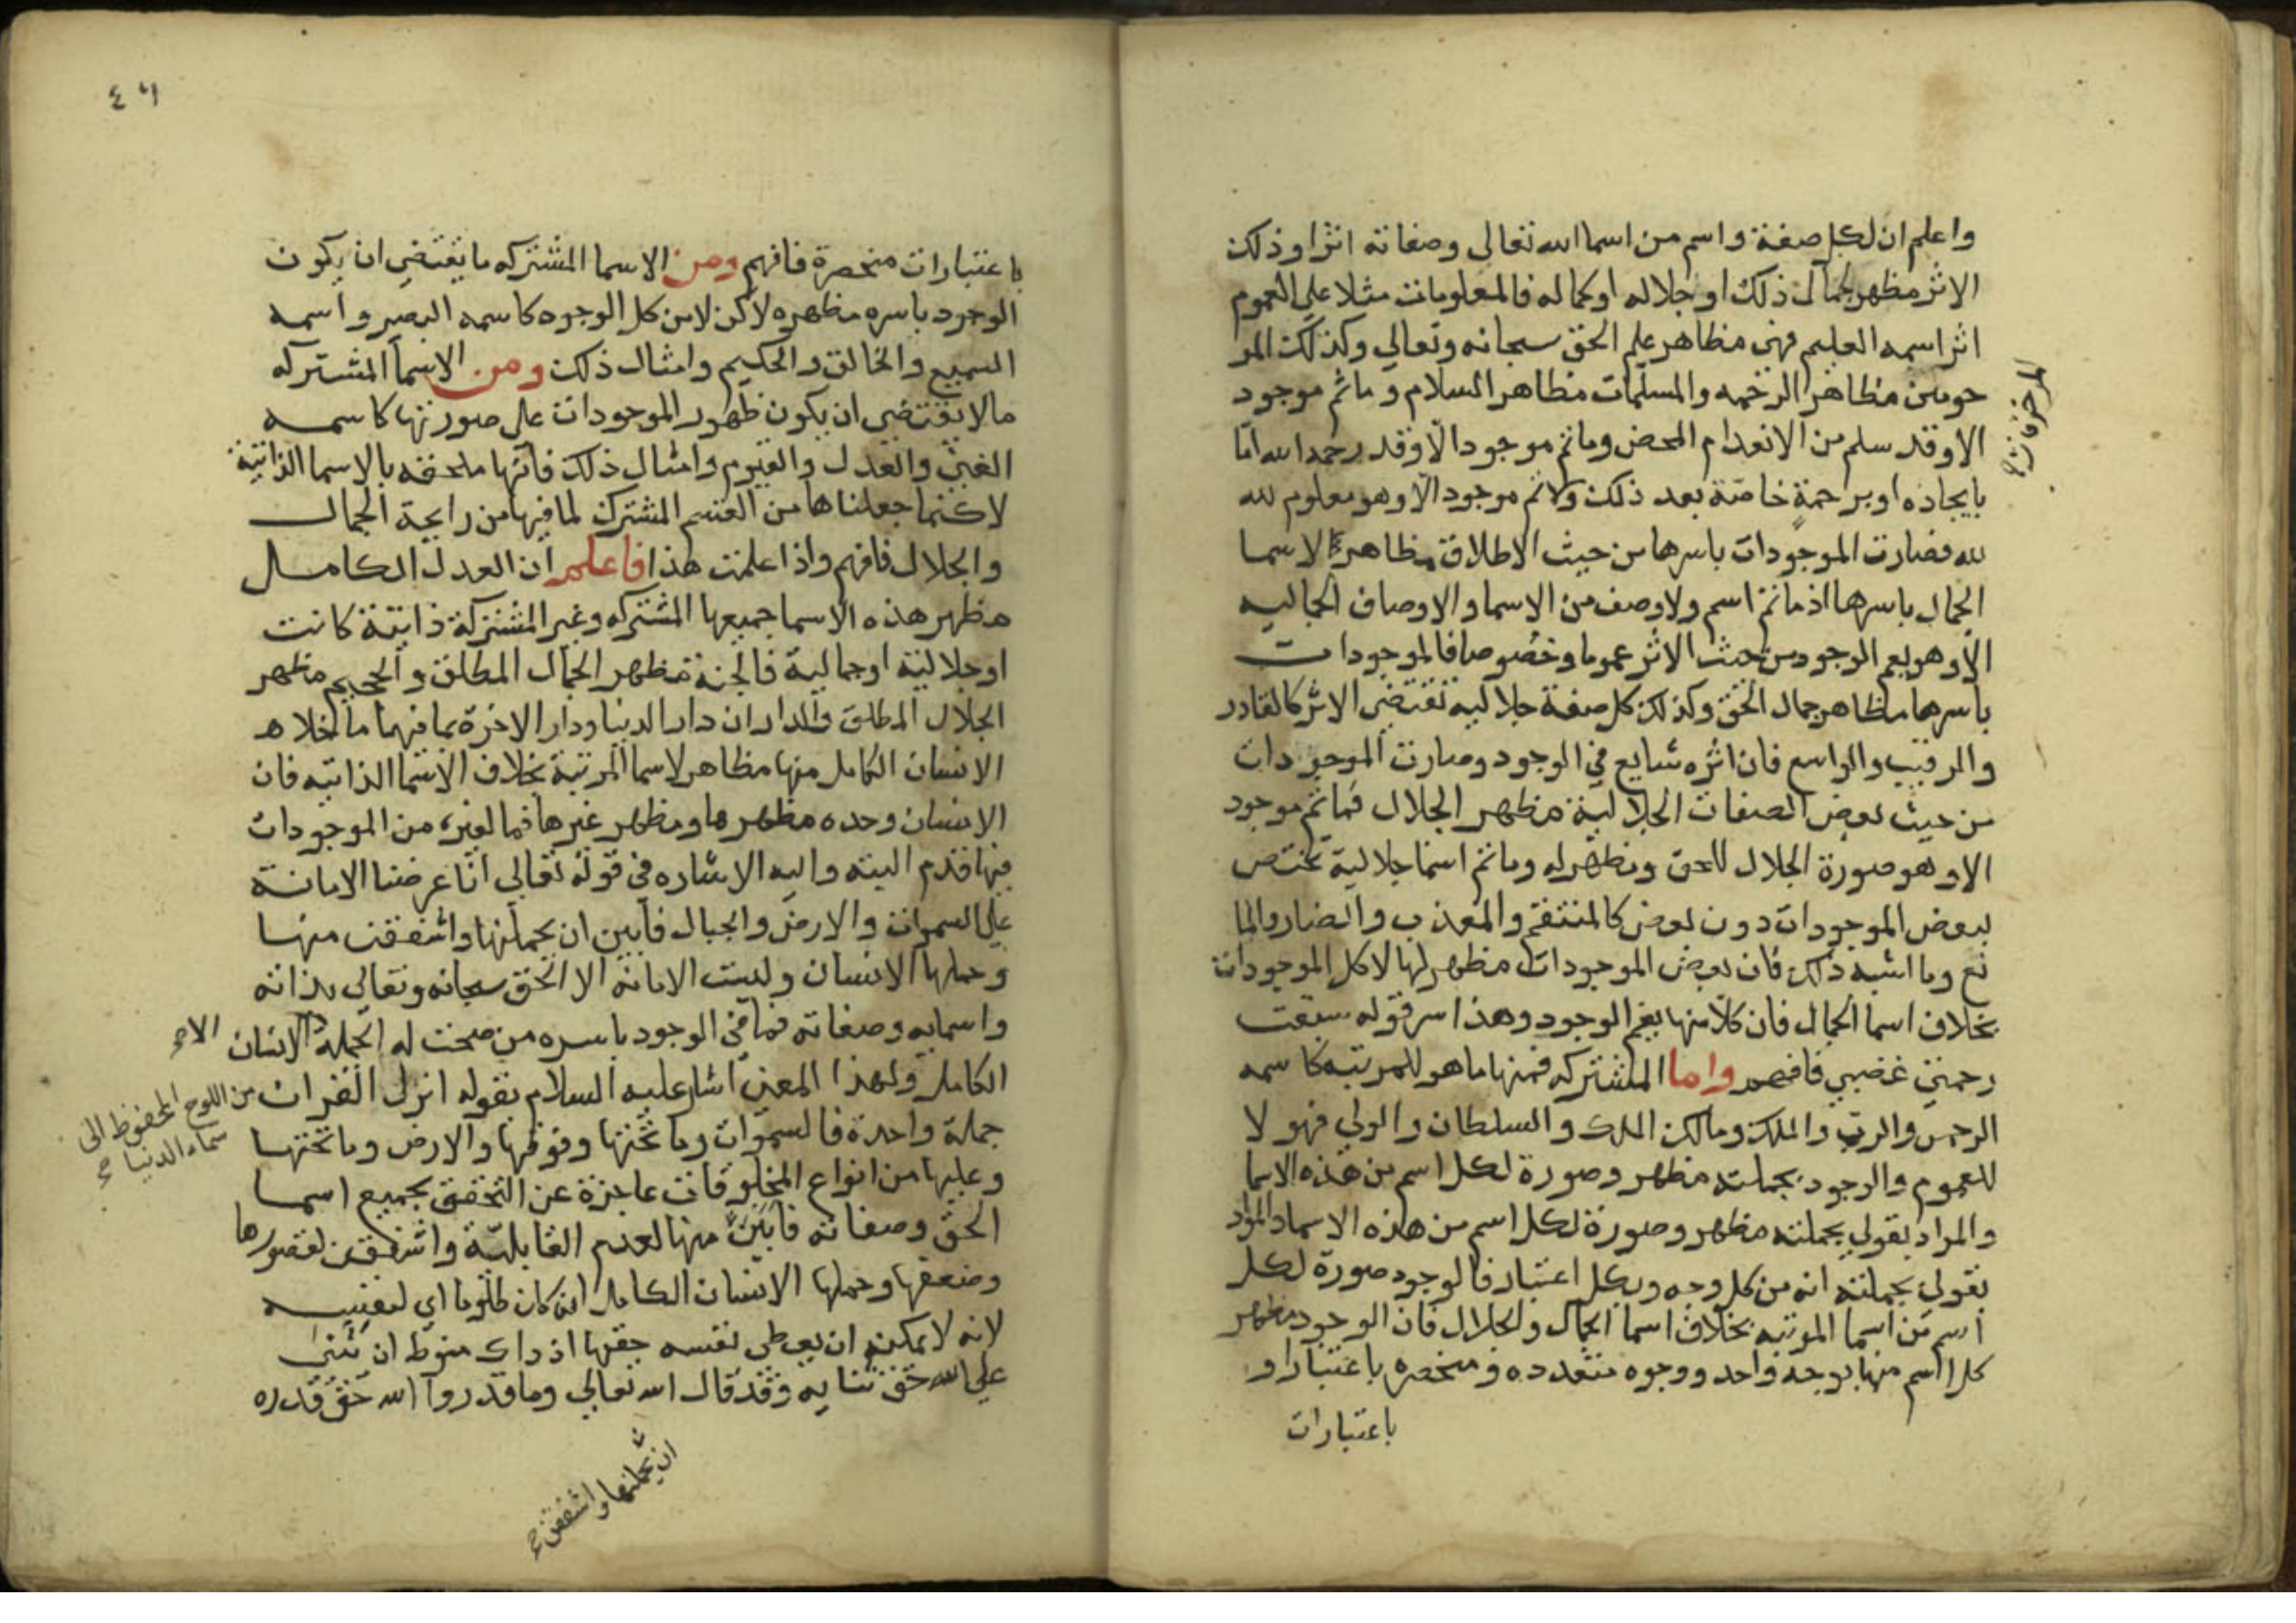 واعلم ان لكل صفة واسم من اسما الله تعالى وصفاته اثرا وذلك
الاثر مظهر لجمال ذلك او جلاله او كماله فالمعلومات مثلا على العموم
اثر اسمه العليم فهى مظاهر علم الحق سبحانه وتعالى وكذلك المر
حومين مظاهر الرحمه والمسلمات مظاهر السلام وما ثم موجود
الا وقد سلم من الانعدام المحض وما ثم موجود الا وقد رحمه الله اما
بايجاده او برحمة خاصة بعد ذلك ولا ثم موجود الا وهو معلوم لله
لله فصارت الموجودات باسرها من حيث الاطلاق مظاهر الاسما
الجمال باسرها اذ ما ثم اسم ولا وصف من الاسما والاوصاف الجماليه
الا وهو يعم الوجود من حيث الاثر عموما وخصوصا فالموجودات
باسرها مظاهر جمال الحق وكذلك كل صفة جلاليه تقتضى الاثر كالقادر
والرقيب والواسع فان اثره شايع فى الوجود وصارت الموجودات
من حيث بعض الصفات الجلالية مظهر الجلال فما ثم موجود
الا وهو صورة الجلال للحق ومظهر له وما ثم اسما جلالية تختص
ببعض الموجودات دون بعض كالمنتقم والمعذب والضار والما
نع وما اشبه ذلك فان بعض الموجودات مظهر لها لا كل الموجودات
بخلاف اسما الجمال فان كلا منها يعم الوجود وهذا سر قوله سبقت
رحمتى غضبي فافهم واما المشتركه فمنها ما هو للمرتبه كاسمه
الرحمن والرب والملك ومالك الملك والسلطان والولي فهو لا
للعموم والوجود بجملته مظهر وصورة لكل اسم من هذه الاسما
والمراد بقولى بجملته مظهر وصورة لكل اسم من هذه الاسما والمراد
بقولى بجملته انه من كل وجه وبكل اعتبار فالوجود صورة لكل
اسم من اسما المرتبه بخلاف اسما الجمال والجلال فان الوجود مظهر
كل اسم منها بوجه واحد ووجوه متعدده ومنحصره باعتبار او
باعتبارات
٤٦
باعتبارات منحصرة فافهم ومن الاسما المشتركه ما يقتضى ان يكون
الوجود باسره مظهره لاكن لا من كل الوجوه كاسمه البصير واسمه
السميع والخالق والحكيم وامثال ذلك ومن الاسما المشتركه
ما لا يقتضى ان يكون ظهور الموجودات على صورتها كاسمه
الغنى والعدل والقيوم وامثال ذلك فانها ملحقه بالاسما الذاتية
لاكنما جعلناها من القسم المشترك لما فيها من رايحة الجمال
والجلال فافهم واذا علمت هذا فاعلم ان العدل الكامل
مظهر هذه الاسما جميعها المشتركه وغير المشتركة ذاتية كانت
او جلالية او جمالية فالجنة مظهر الجمال المطلق والجحيم مظهر
الجلال المطلق والداران دار الدنيا ودار الاخرة بما فيهما ما خلا هـ
الانسان الكامل منها مظاهر لاسما المرتبة بخلاف الاسما الذاتيه فان
الانسان وحده مظهرها ومظهر غيرها فما لغيره من الموجودات
فيها قدم البتة واليه الاشاره فى قوله تعالى انا عرضنا الامانة
على السموات والارض والجبال فابين ان يحملنها واشفقن منها
وحملها الانسان وليست الامانه الا الحق سبحانه وتعالى بذاته
واسمايه وصفاته فما فى الوجود باسره من صحت له الجملة الا الانسان
الكامل ولهذا المعنى اشار عليه السلام بقوله انزل القران
جملة واحدة فالسموات وما تحتها وفوقها والارض وما تحتها
وعليها من انواع المخلوقات عاجزة عن التحقق بجميع اسما
الحق وصفاته فابين منها لعدم القابلية واشفقن لقصورها
وضعفها وحملها الانسان الكامل انه كان ظلوما اي لنفسه
لانه لا يمكنه ان يعطى نفسه حقها اذ ذاك منوط ان يثنى
على الله حق ثنايه وقد قال الله تعالى وما قدروا الله حق قدره
من اللوح المحفوظ الى
سماء الدنيا
ان يحملنها واشفقن